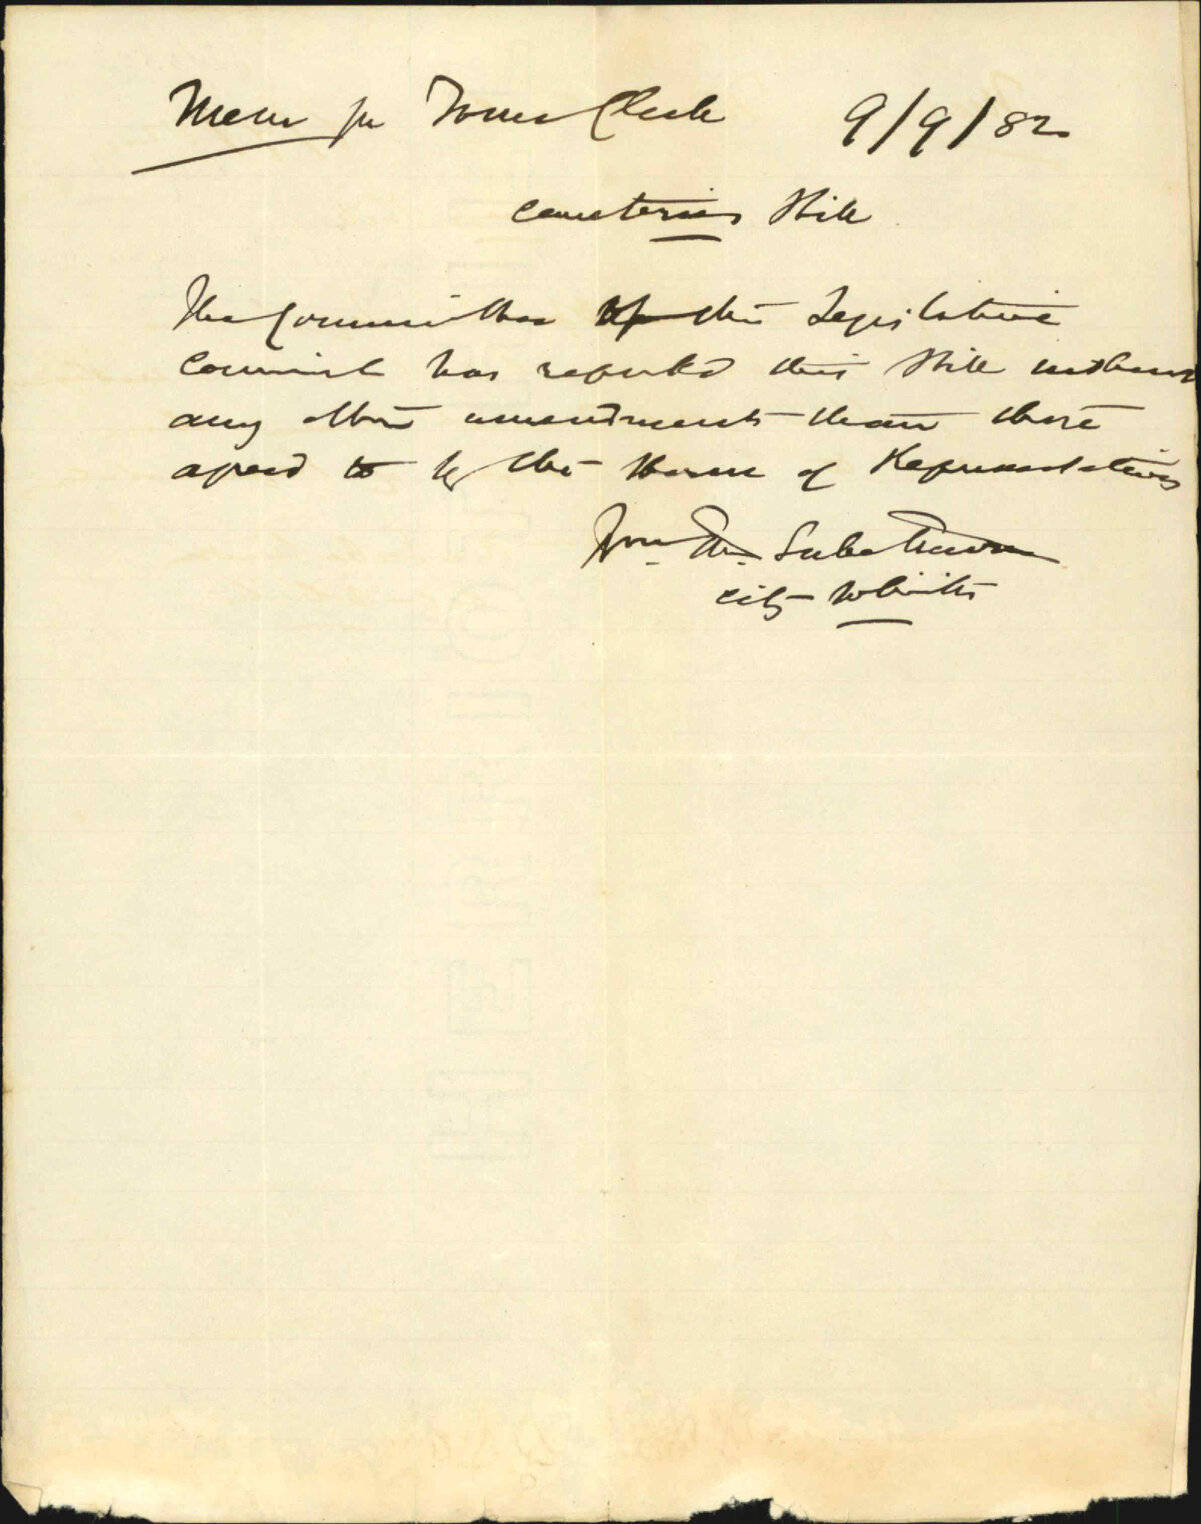 Memo for Town Clerk 9/9/82
Cemeteries Bill
The Committee of the Legislative
Council has reported this Bill without
any other amendments than those
agreed to by the House of Representatives
Wm
City Solicitor